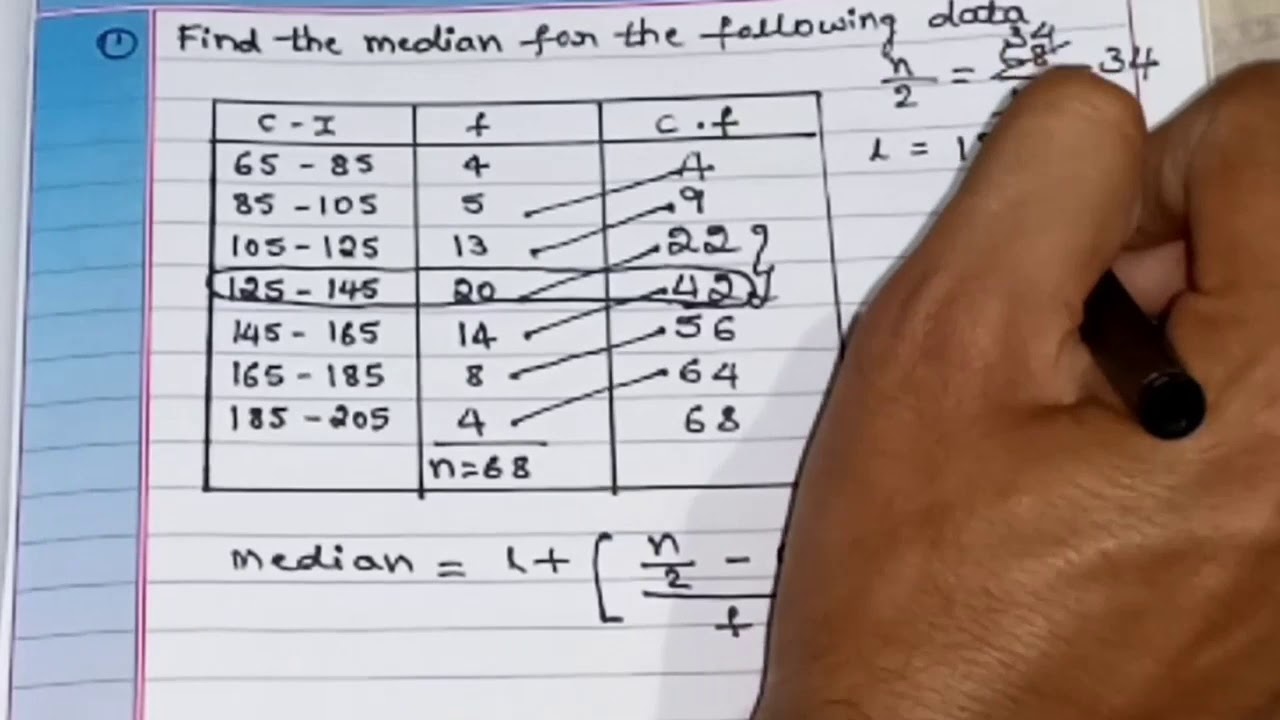 ① Find the median for the following data
n/2 = 68 34 - 34
l = 1
C-I f C.f
65 - 85 4 4
85 - 105 5 9
105 - 125 13 22
125 - 145 20 42
145 - 165 14 56
165 - 185 8 64
185 - 205 4 68
n=68
median = l + [ n/2 -
f